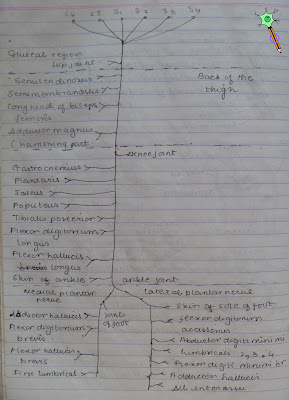 L4 L5 S1 S2 S3 S4
Gluteal region
Hip joint
Semitendinosus
Back of the
thigh
Semimembranosus
Long head of biceps
femoris
Adductor magnus
(hamstring part
Knee joint
Gastrocnemius
Plantaris
Soleus
Popliteus
Tibialis posterior
Flexor digitorum
longus
Flexor hallucis
longus
Skin of ankle
ankle joint
Medial plantar
nerve
lateral plantar nerve
Abductor hallucis
Joints
of foot
Skin of sole of foot
flexor digitorum
accessorius
Flexor digitorum
brevis
Abductor digiti minimi
lumbricals 2,3,4
Flexor hallucis
brevis
Flexor digiti minimi br
Adductor hallucis
First lumbrical
All interossei